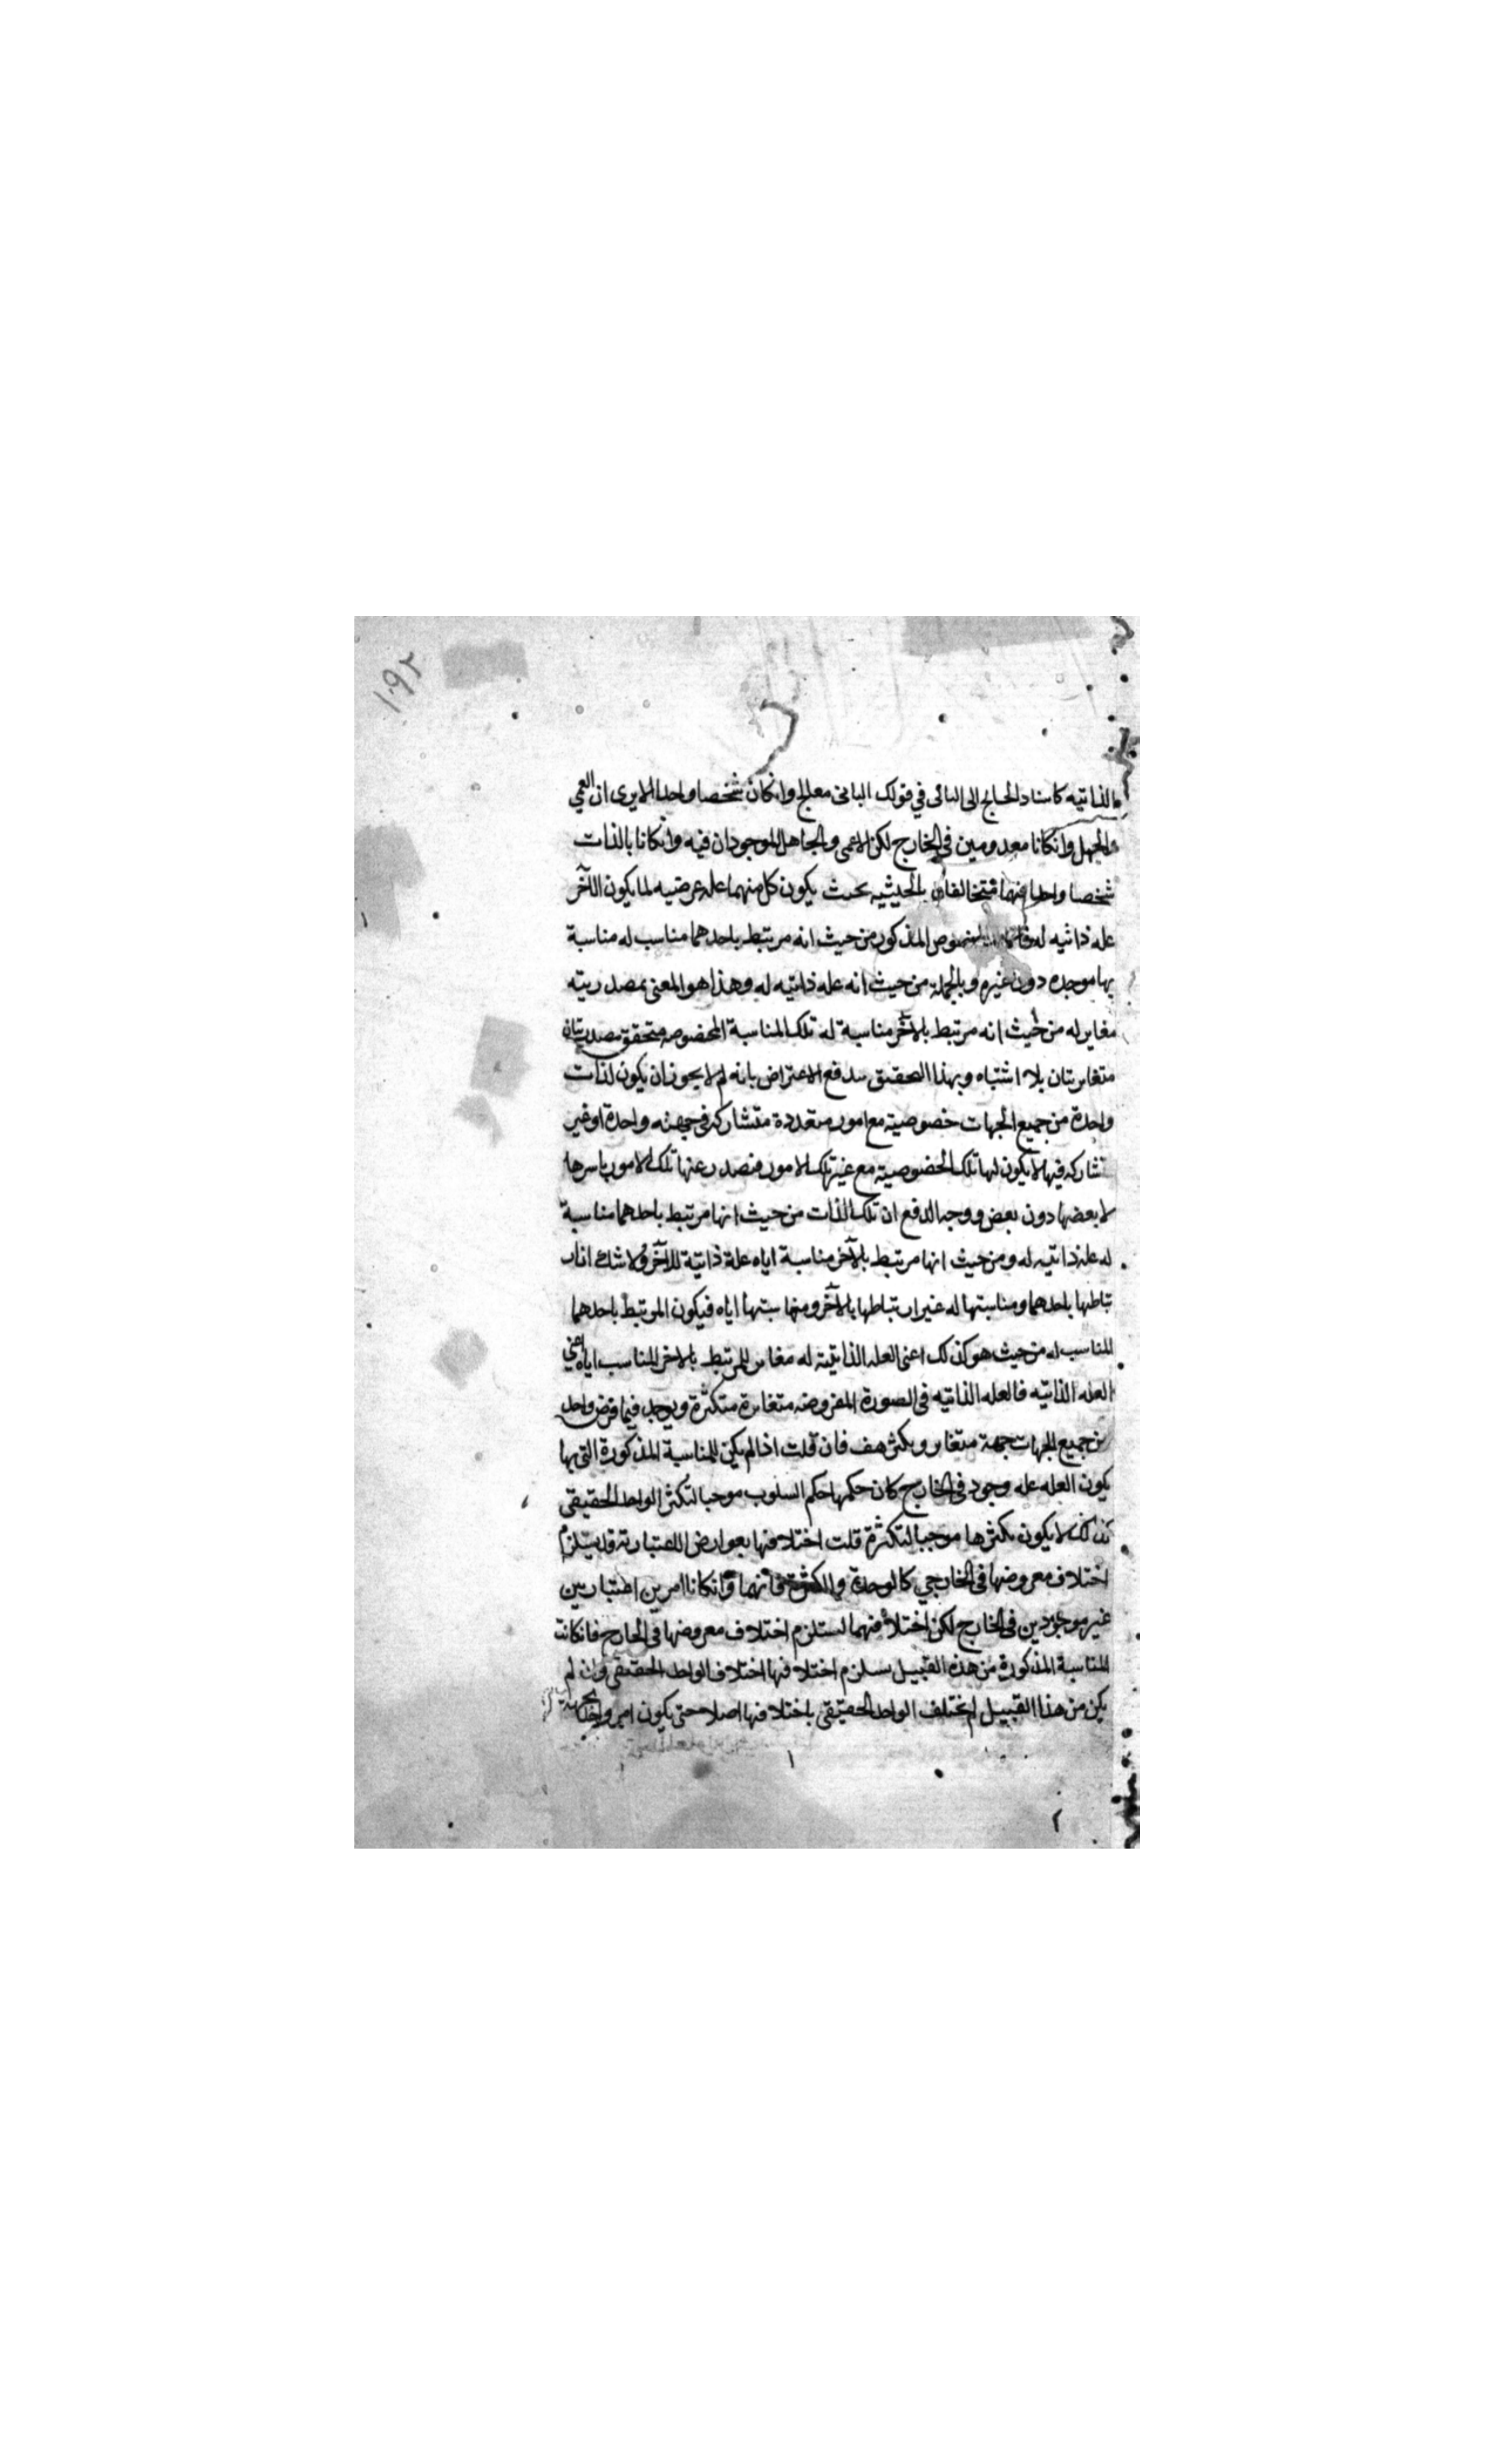 ١٠٩٢
الذاتيه كاسناد المعالج الى البانى في قولك البانى معالج وانكان شخصا واحدا الا يرى ان العمى
والجهل وانكانا معدومين في الخارج لكن الاعمى والجاهل الموجودان فيه وانكانا بالذات
شخصا واحدا متخالفان بالحيثيه بحيث يكون كل منهما عله عرضيه لما يكون الآخر
عله ذاتيه له المذكور من حيث انه مرتبط باحدهما مناسب له مناسبة
بها موجده دون غيره وبالجملة من حيث انه عله ذاتيه له وهذا هو المعنى بمصدريته
مغاير له من حيث انه مرتبط بالآخر مناسبة له تلك المناسبة المخصوصه متحقق مصدريتان
متغايرتان بلا اشتباه وبهذا التحقيق يندفع الاعتراض بانه لم لا يجوز ان يكون لذات
واحدة من جميع الجهات خصوصية مع امور متعددة متشاركه في جهته واحدة او غير
متشاركه فيها لا يكون لها تلك الخصوصية مع غير تلك الامور فتصدر عنها تلك الامور باسرها
لا بعضها دون بعض ووجه الدفع ان تلك الذات من حيث انها مرتبط باحدهما مناسبة
له عله ذاتيه له ومن حيث انها مرتبط بالآخر مناسبة اياه علة ذاتية للآخر ولا شك ان ار
تباطها باحدهما ومناسبتها له غير ارتباطها بالآخر ومناسبتها اياه فيكون المرتبط باحدهما
المناسب له من حيث هو كذلك اعنى العله الذاتية له مغاير للمرتبط بالاخر المناسب اياه اعني
العله الذاتيه فالعله الذاتيه في الصورة المفروضه متغايرة متكثرة ويوجد فيما فرض واحد
من جميع الجهات جهة متغاير وبكثر هف فان قلت اذا لم يكن للمناسبة المذكورة التى بها
يكون العله عله وجود في الخارج كان حكمها حكم السلوب موجبا لتكثر الواحد الحقيقى
كذلك لا يكون بكثرها موجبا لتكثره قلت اختلافها بعوارض الاعتباريه قد يستلزم
اختلاف معروضها في الخارجي كالوحدة والكثرة فانهما وانكانا امرين اعتباريين
غير موجودين في الخارج لكن اختلافهما لستلزم اختلاف معروضها في الخارج فانكانت
المناسبة المذكورة من هذه القبيل يستلزم اختلافها اختلاف الواحد الحقيقى وان لم
يكن من هذا القبيل لم يختلف الواحد الحقيقى باختلافها اصلا حتى يكون امر واحد